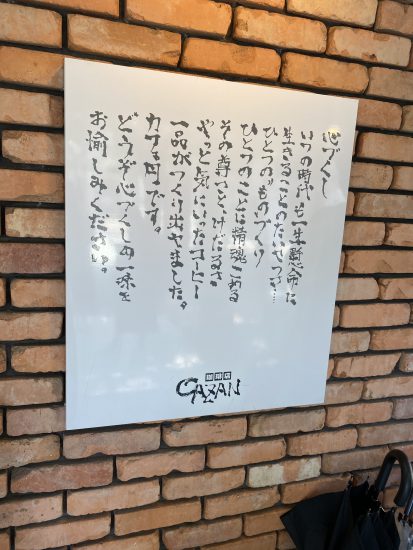 心づくし
いつの時代も一生懸命に
生きることのたいせつさ…
ひとつの"ものづくり
ひとつのことに精魂こめる
その尊さと、けだるさ
やっと気にいったコーヒー
一品がつくり出せました。
カサも同じです。
どうぞ心づくしの一味を
お愉しみください。
珈琲店
CAZAN